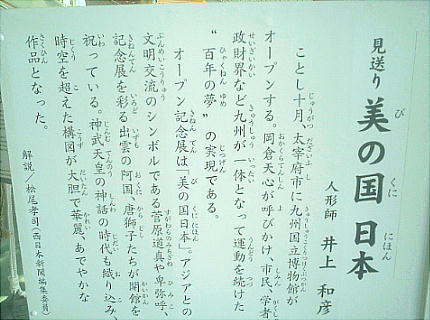 見送り 美の国 日本
人形師 井上 和彦
ことし十月、太宰府市に九州国立博物館が
オープンする。岡倉天心が呼びかけ、市民、学者、
政財界など九州が一体となって運動を続けた
“百年の夢”の実現である。
オープン記念展は「美の国日本」。アジアとの
文明交流のシンボルである菅原道真や卑弥呼、
記念展を彩る出雲の阿国、唐獅子たちが開館を
祝っている。神武天皇の神話の時代も織り込み、
時空を超えた構図が大胆で華麗、あでやかな
作品となった。
解説/松尾孝司(西日本新聞編集委員)